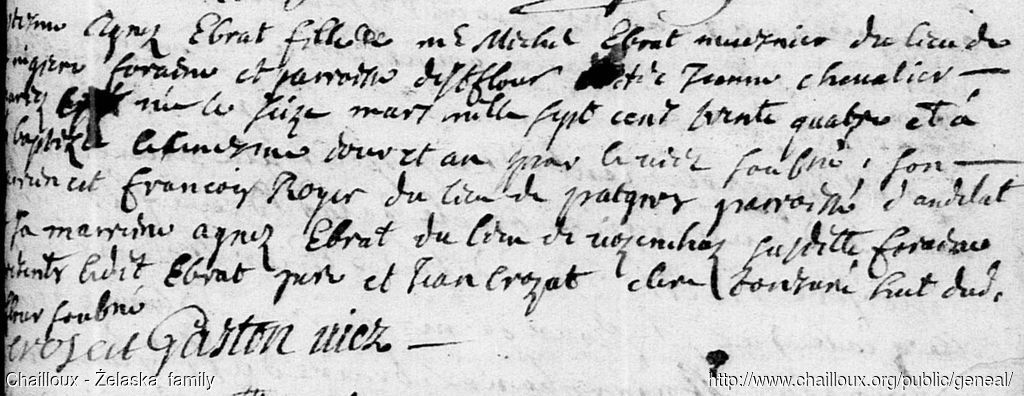 agnez Ebrat fille de me Michel Ebrat meusnier du lieu de
foraine et parroisse de St flour Jeanne chevalier
née le seize mars mille sept cent trente quatre et a
baptizé le mesme jour et an par le viez soubné, son
francois Roger du lieu de parroisse d'andelat
sa marrine agnez Ebrat du lieu de susditte foraine
ledit Ebrat pere et Jean crozat clerc tonsuré huit dud.
soubné
crozat Gaston viez
Chailloux - Želaska family http://www.chailloux.org/public/geneal/